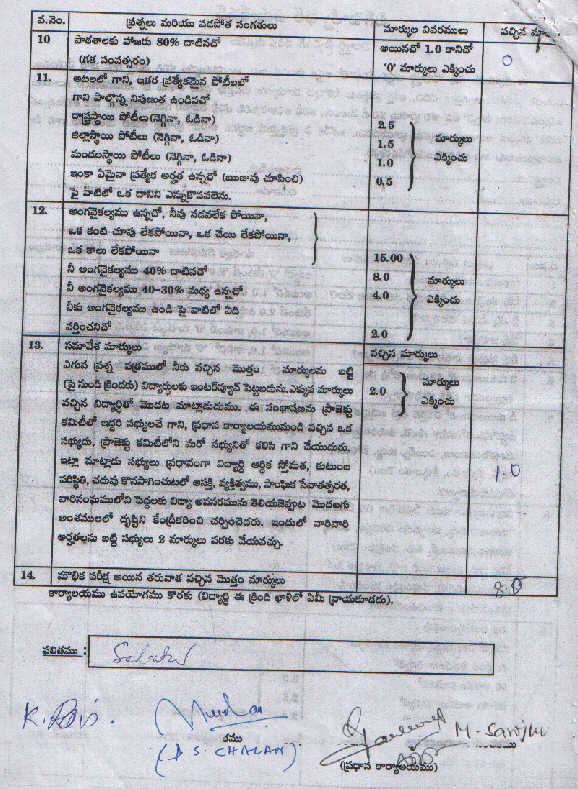 వ.నెం. ప్రశ్నలు మరియు వడపోత సంగతులు మార్కుల వివరములు వచ్చిన
10 పాఠశాలకు హాజరు 80% దాటినచో అయినచో 1.0 కానిచో 0
(గత సంవత్సరం) '0' మార్కులు ఎక్కించు
11. ఆటలలో గాని, ఇతర ప్రత్యేకమైన పోటీలలో
గాని పాల్గొన్న నిపుణత ఉండినచో
రాష్ట్రస్థాయి పోటీలు (నెగ్గినా, ఓడినా) 2.5
జిల్లాస్థాయి పోటీలు (నెగ్గినా, ఓడినా) 1.5 మార్కులు
మండలస్థాయి పోటీలు (నెగ్గినా, ఓడినా) 1.0 ఎక్కించు
ఇంకా ఏమైనా ప్రత్యేక అర్హత ఉన్నచో (ఋజువు చూపించి) 0.5
పై వాటిలో ఒక దానిని ఎన్నుకొనవలెను.
12. అంగవైకల్యము ఉన్నచో, నీవు నడవలేక పోయినా,
ఒక కంటి చూపు లేకపోయినా, ఒక చేయి లేకపోయినా,
ఒక కాలు లేకపోయినా 15.00
నీ అంగవైకల్యము 40% దాటినచో 8.0 మార్కులు
నీ అంగవైకల్యము 40-30% మధ్య ఉన్నచో 4.0 ఎక్కించు
నీకు అంగవైకల్యము ఉండి పై వాటిలో ఏది
వర్తించనిచో 2.0
13. సమావేశ మార్కులు వచ్చిన మార్కులు
ఎగువ ప్రశ్న పత్రములో నీకు వచ్చిన మొత్తం మార్కులను బట్టి
(పై నుండి క్రిందకు) విద్యార్థులకు ఇంటర్వ్యూకి పెట్టబడును. ఎక్కువ మార్కులు 2.0 మార్కులు
వచ్చిన విద్యార్థితో మొదట మాట్లాడుదుము. ఈ సంభాషణను ప్రాజెక్టు ఎక్కించు
కమిటీలో ఇద్దరి సభ్యులచే గాని, ప్రధాన కార్యాలయమునుండి వచ్చిన ఒక
సభ్యుడు, ప్రాజెక్టు కమిటీలోని మరో సభ్యునితో కలిసి గాని చేయుదురు.
ఇట్లా మాట్లాడు సభ్యులు ప్రధానంగా విద్యార్థి ఆర్థిక స్తోమత, కుటుంబ
పరిస్థితి, చదువు కొనసాగించుటలో ఆసక్తి, వ్యక్తిత్వము, సాంఘిక సేవాతత్పరత, 1.0
వారిసంఘములోని పెద్దలకు విద్యా అవసరమును తెలియజెప్పుట మొదలగు
అంశములలో దృష్టిని కేంద్రీకరించి చర్చించెదరు. ఇందులో వారివారి
అర్హతలను బట్టి సభ్యులు 2 మార్కులు వరకు వేయవచ్చు.
14. మౌఖిక పరీక్ష అయిన తరువాత వచ్చిన మొత్తం మార్కులు 8.0
కార్యాలయము ఉపయోగము కొరకు (విద్యార్థి ఈ క్రింది ఖాళీలో ఏమీ వ్రాయకూడదు).
ఫలితము :
M. Sarojini
(D S. CHALAM)
(ప్రధాన కార్యాలయము)